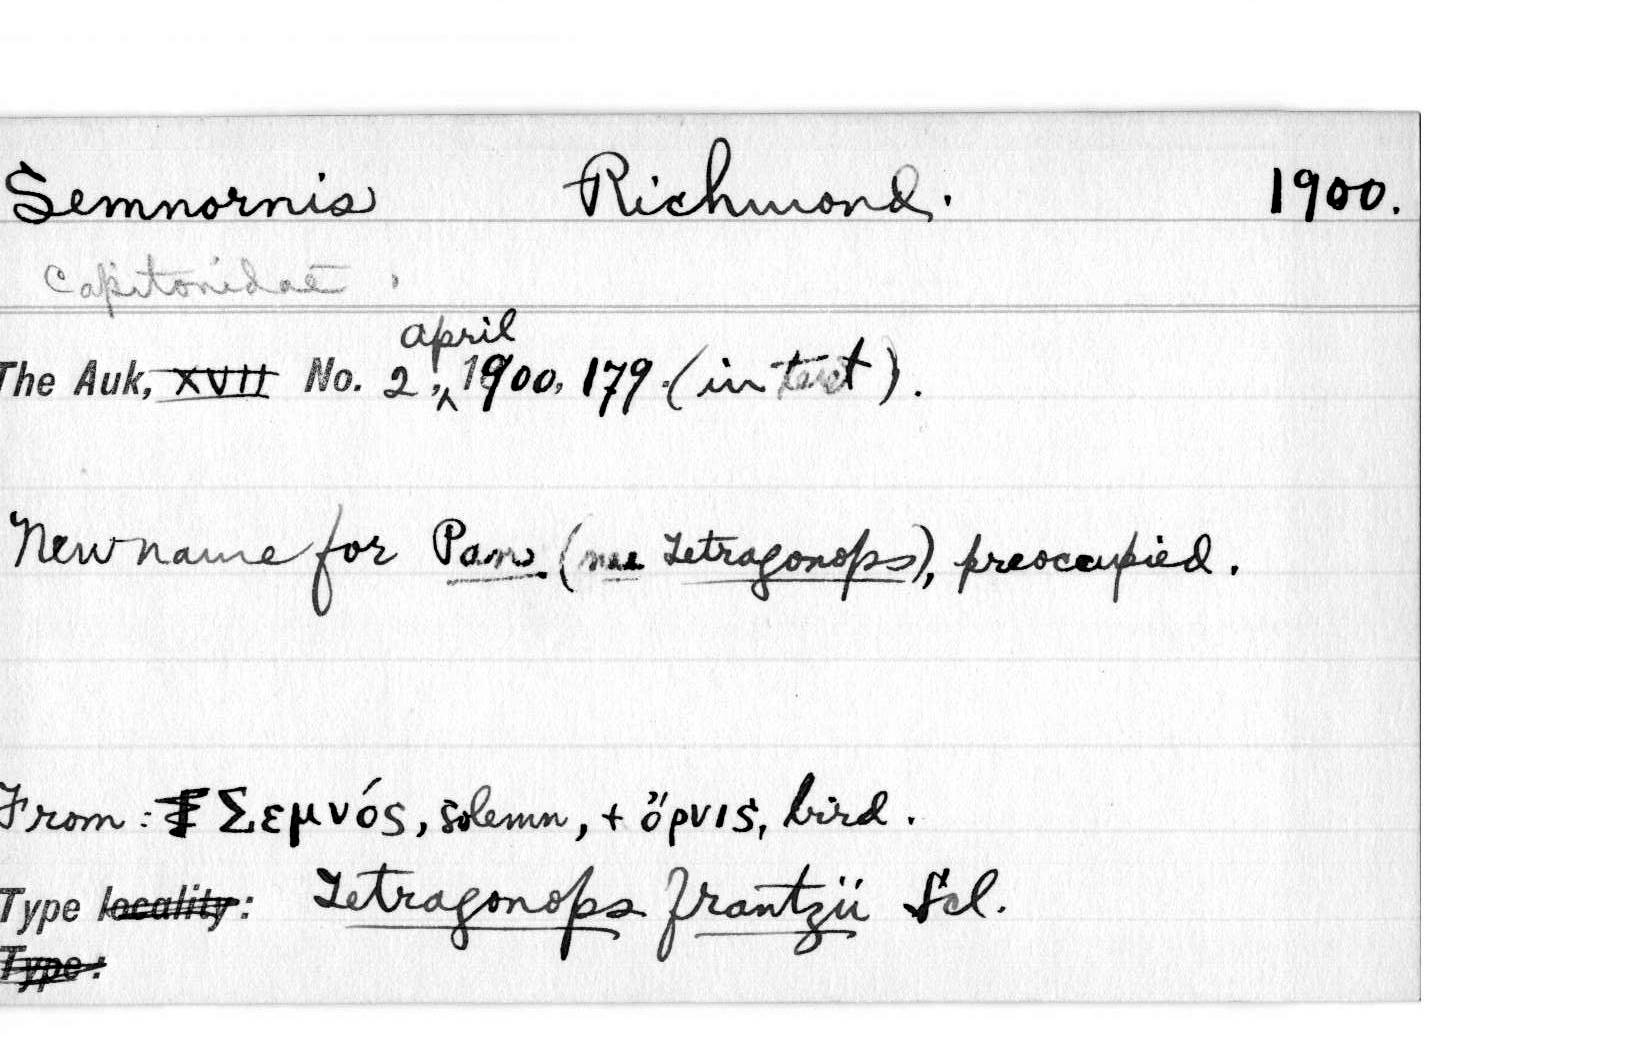 Semnornis Richmond. 1900.
Capitonidae.
april
The Auk, XVII No. 2, 1900, 179. (in text).
New name for Pan (nec Tetragonops), preoccupied.
From: Σεμνός, solemn, + ὄρνις, bird.
Type locality: Tetragonops frantzii Scl.
Type: